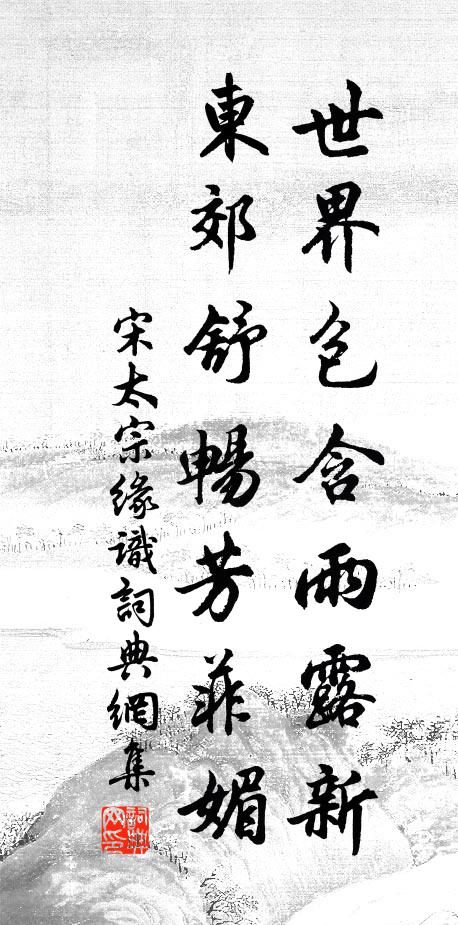 世界包含雨露新
東郊舒暢芳菲媚
宋太宗緣識詞典網集